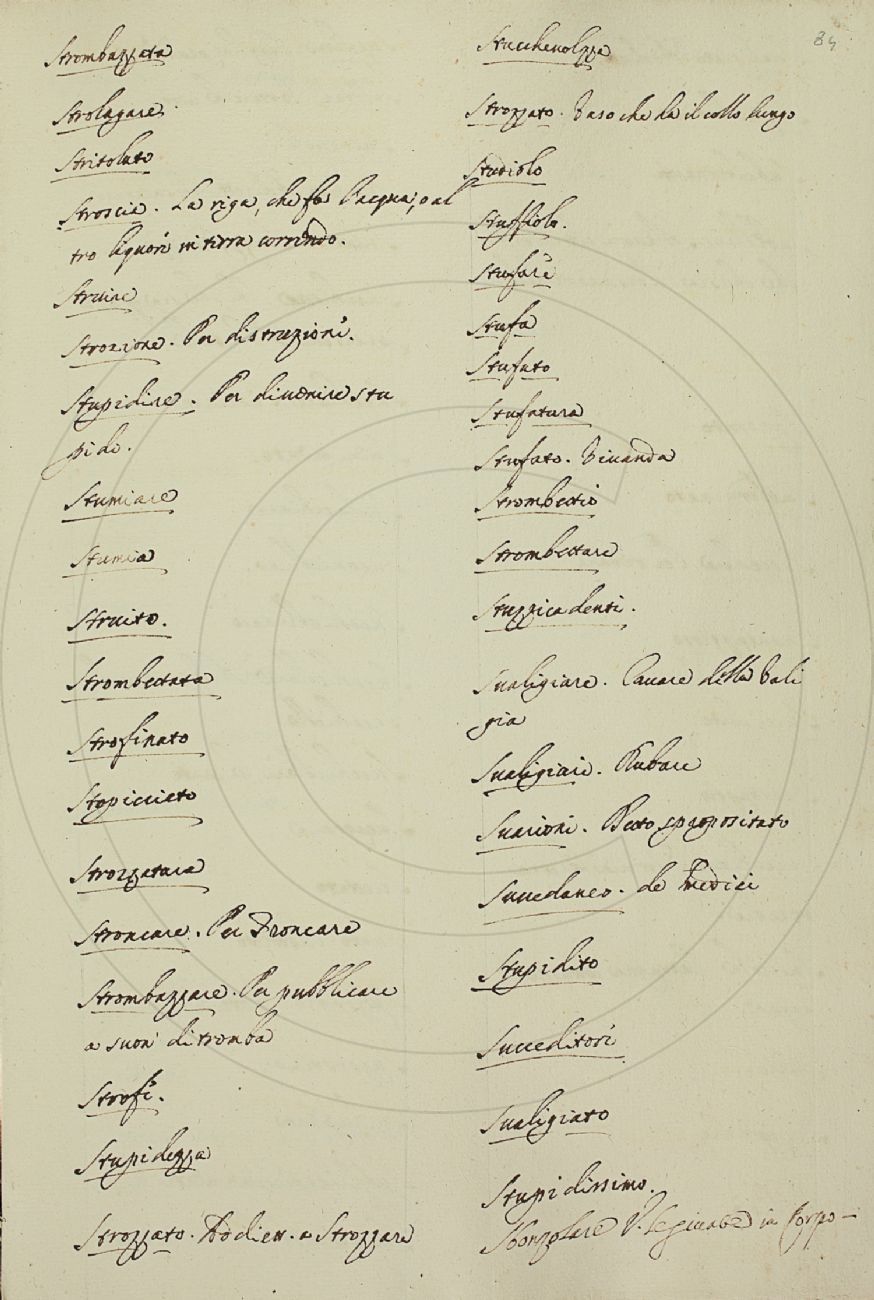 84
Strombazzata
Strolagare.
Stritolato
Stroscia. La riga, che fa l'acqua, o al
tro liquore in terra correndo.
Struire
Strozione. Per distruzione.
Stupidire. Per divenire stu
pido.
Stumiare
Stumia
Struito.
Strombettata
Strofinato
Stopicciato
Strozzatura
Stroncare. Per Troncare
Strombazzare. Per pubblicare
a suon di tromba
Strofe.
Stupidezza
Strozzato. Addiett. a Strozzare
Stucchevolezza
Strozzato. Vaso che ha il collo lungo
Studiolo
Stuffiolo.
Stufare
Stufa
Stufato
Stufatura
Stufato. Vivanda
Strombettio
Strombettare
Stuzzicadenti.
Svaligiare. Cavare della Vali
gia
Svaligiare. Rubare
Svarioni. Detto spropositato
Succedaneo. de Medici
Stupidito
Succeditore
Svaligiato
Stupidissimo.
Sbonzolare V. in Corpo